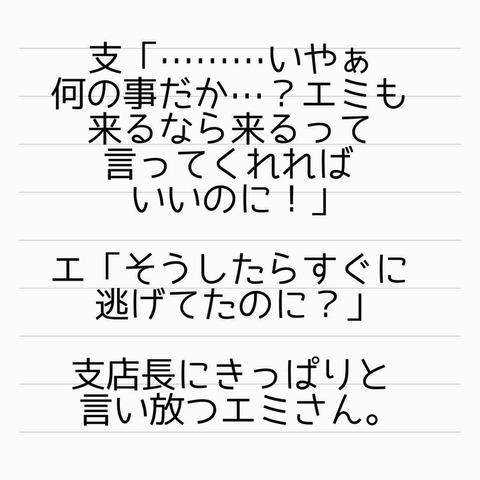 支「………いやぁ
何の事だか…？エミも
来るなら来るって
言ってくれれば
いいのに！」
エ「そうしたらすぐに
逃げてたのに？」
支店長にきっぱりと
言い放つエミさん。